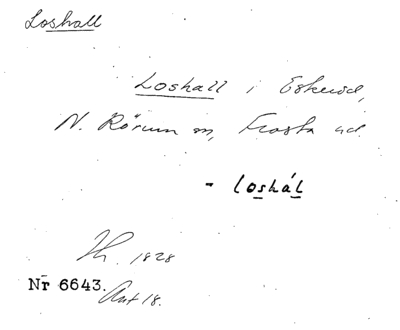 Loshall
Loshall i Eskeröd,
N. Rörum sn, Frosta hd.
- loshál
Th. 1828
Nr 6643.
Ant 18.